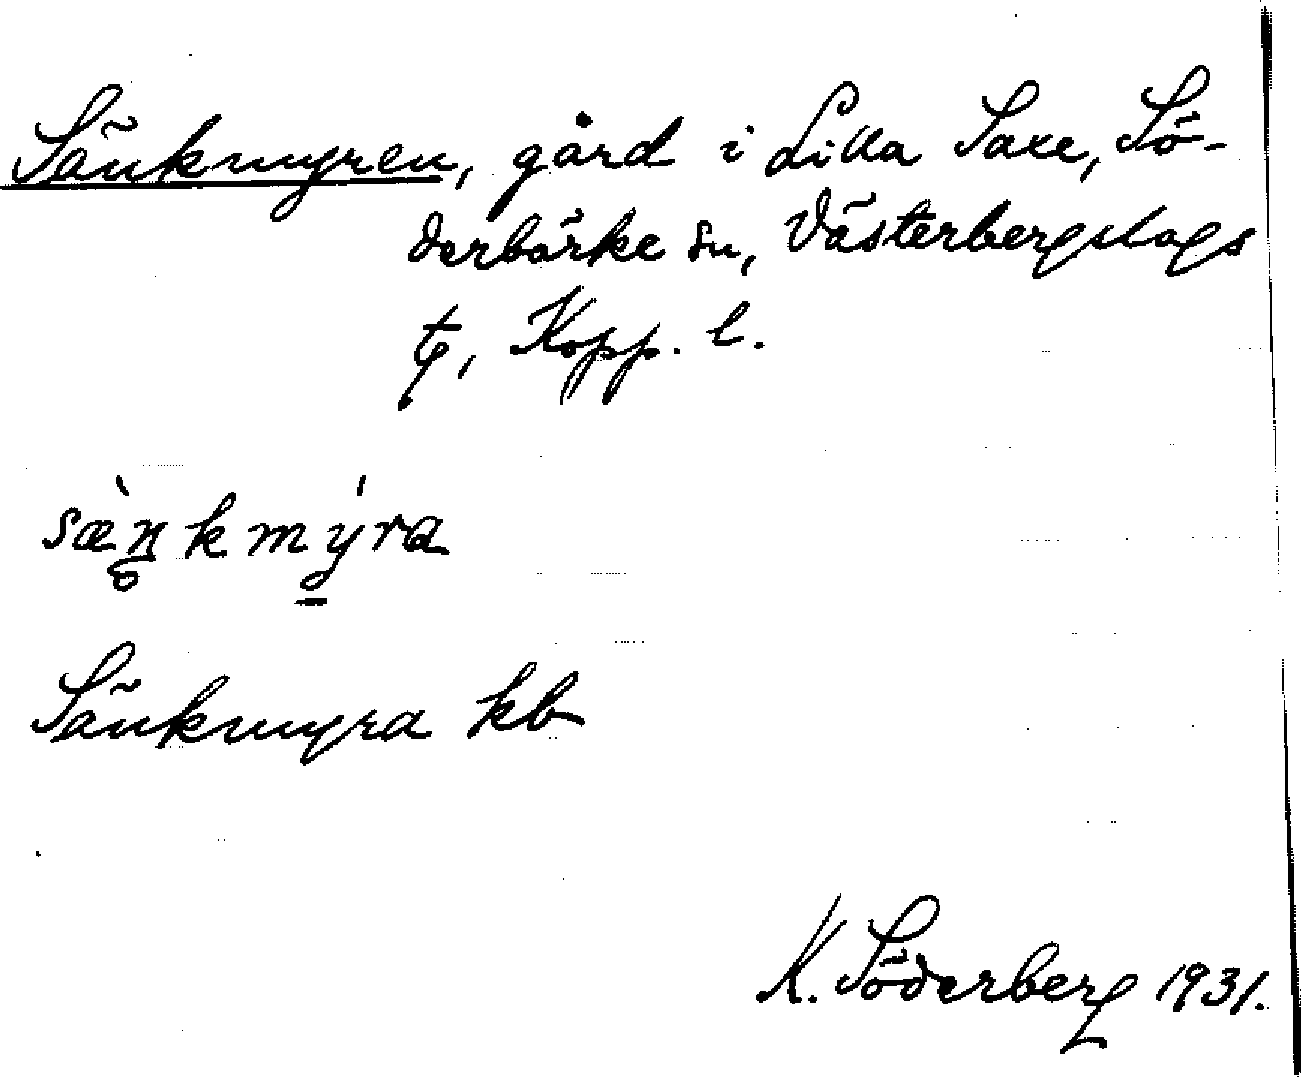 Sänkmyren, gård i Lilla Saxe, Sö-
derbärke sn, Västerbergslags
tg, Kopp. l.
sæ̀ŋkmýra
Sänkmyra kb
K. Söderberg 1931.